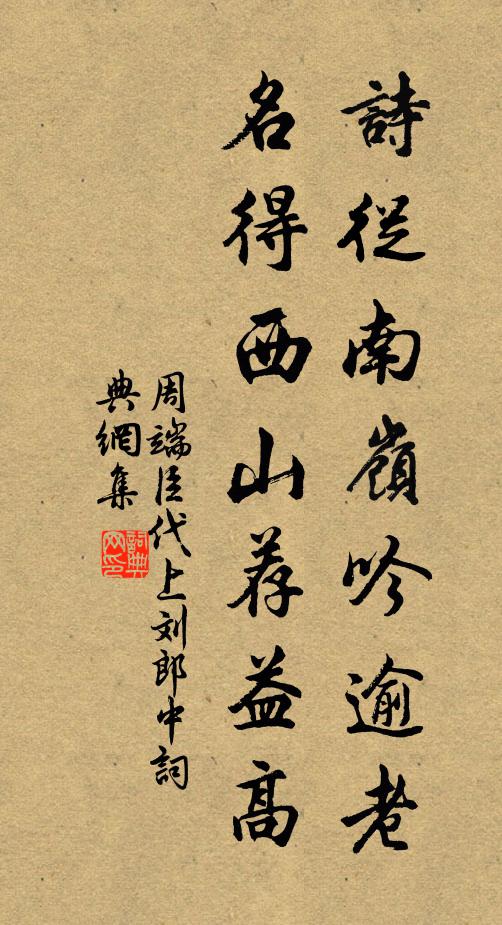 詩從南嶺吟逾老
名得西山荐益高
周端臣代上刘郎中詞
典網集
詞典
网印